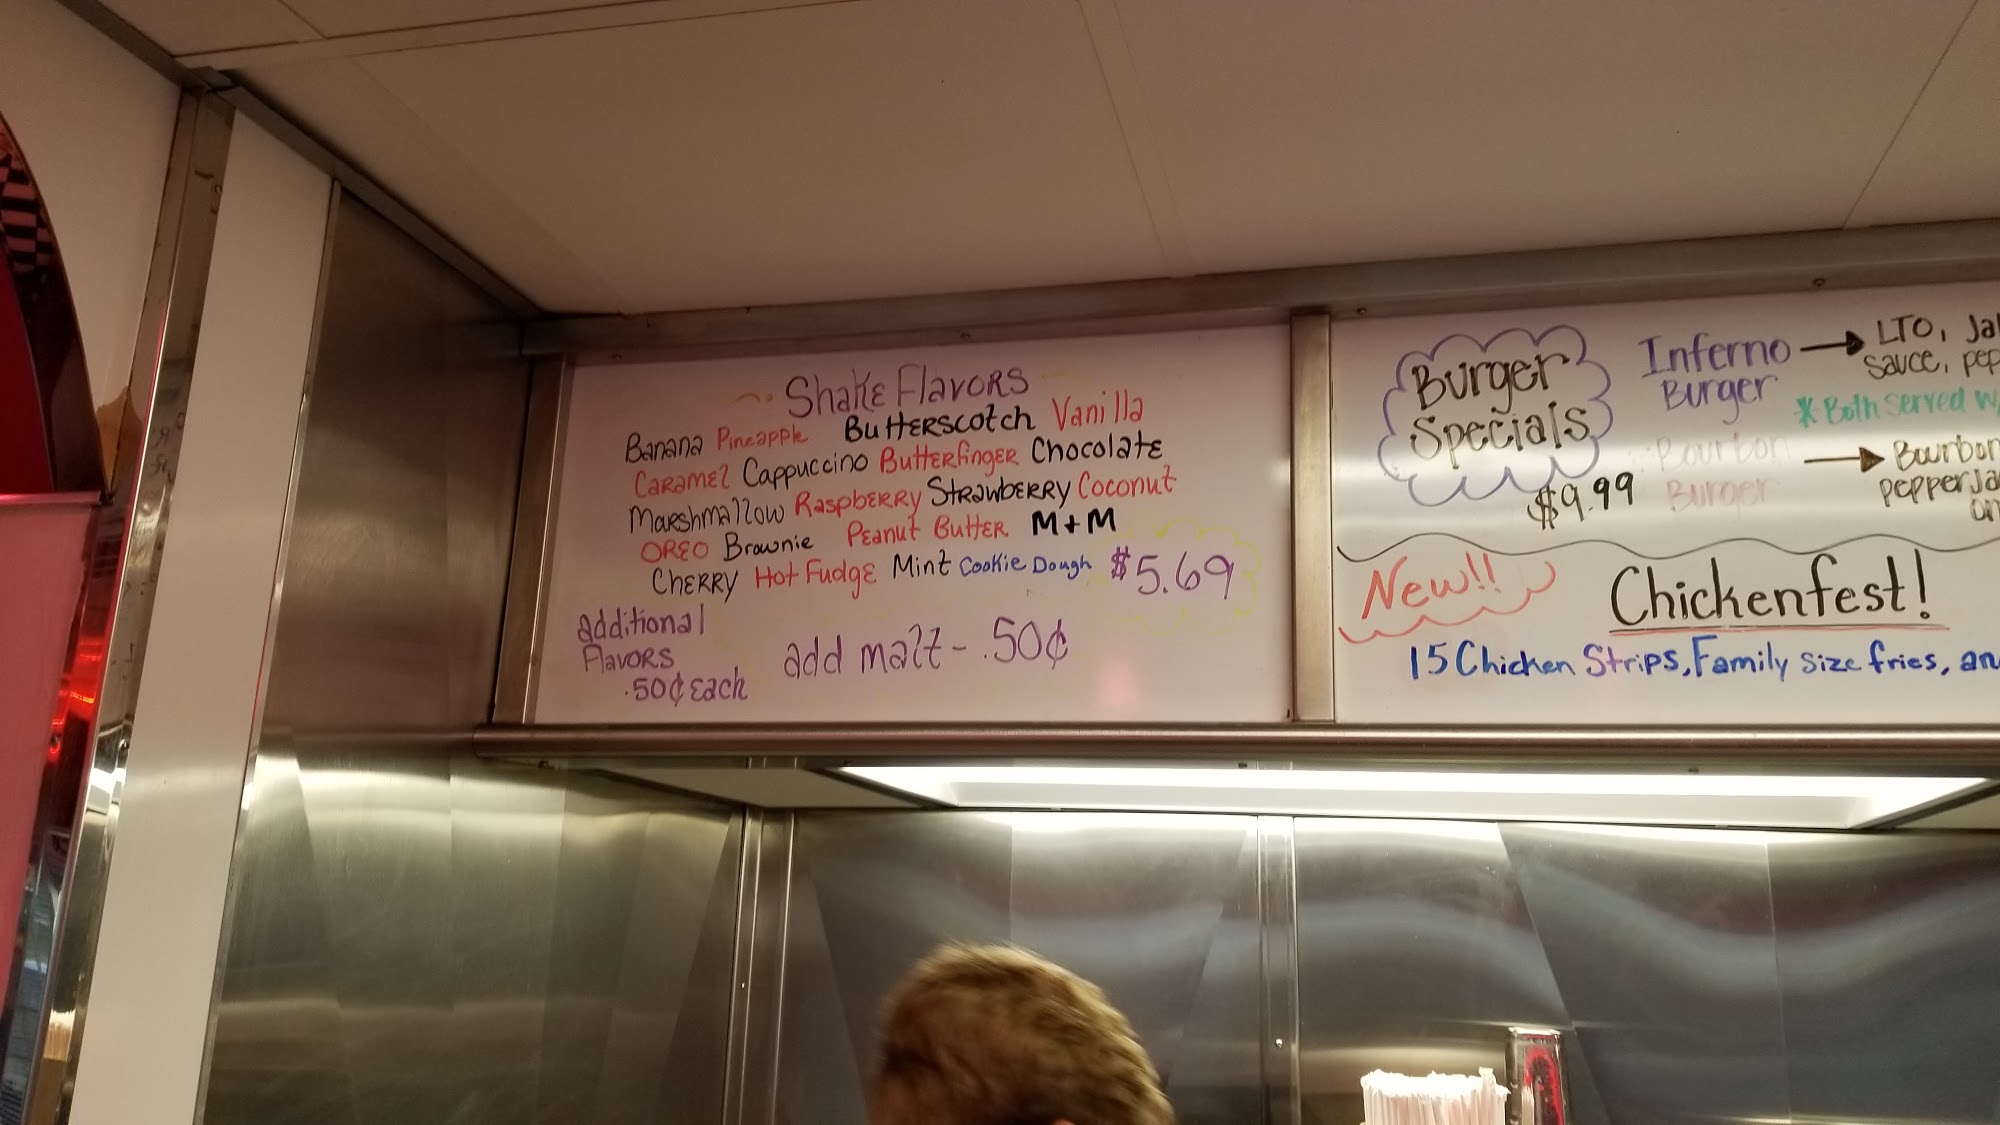 Shake Flavors
Banana Pineapple Butterscotch Vanilla
Caramel Cappuccino Butterfinger Chocolate
Marshmallow Raspberry Strawberry Coconut
OREO Brownie Peanut Butter M+M
Cherry Hot Fudge Mint Cookie Dough $5.69
additional
Flavors
.50¢ Each
add malt - .50¢
Burger
Specials
$9.99
Inferno
Burger
LTO,
Sauce,
*Both Served
Bourbon
Burger
Bourbon
New!!
Chickenfest!
15 Chicken Strips, Family Size fries,